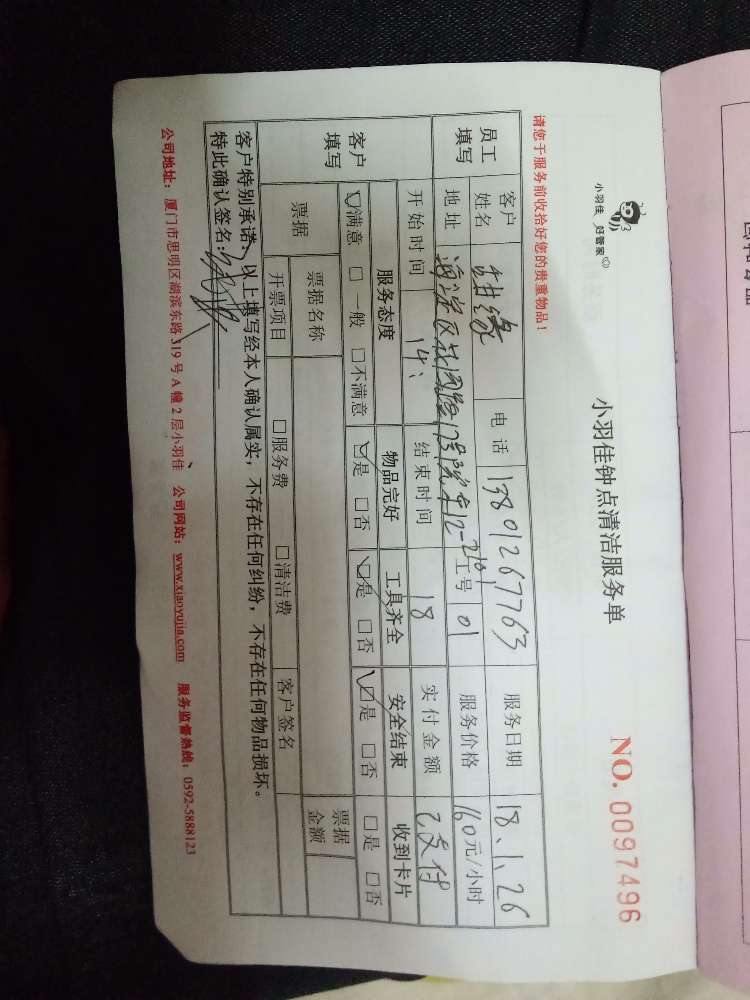 小羽佳 好管家
小羽佳钟点清洁服务单
NO. 0097496
请您于服务前收拾好您的贵重物品！
员工填写
客户姓名 甜缘 电话 13801267763 服务日期 18.1.26
地址 工号 01 服务价格 160元/小时
开始时间 14: 结束时间 18 实付金额 已支付
客户填写
服务态度 物品完好 工具齐全 安全结束 收到卡片
☑满意 □一般 □不满意 ☑是 □否 ☑是 □否 ☑是 □否 □是 □否
票据 票据名称 票据金额
开票项目 □服务费 □清洁费 客户签名
客户特别承诺：以上填写经本人确认属实，不存在任何纠纷，不存在任何物品损坏。
特此确认签名：
公司地址：厦门市思明区湖滨东路319号A幢2层小羽佳 公司网站：www.xiaoyujia.com 服务监督热线：0592-5888123